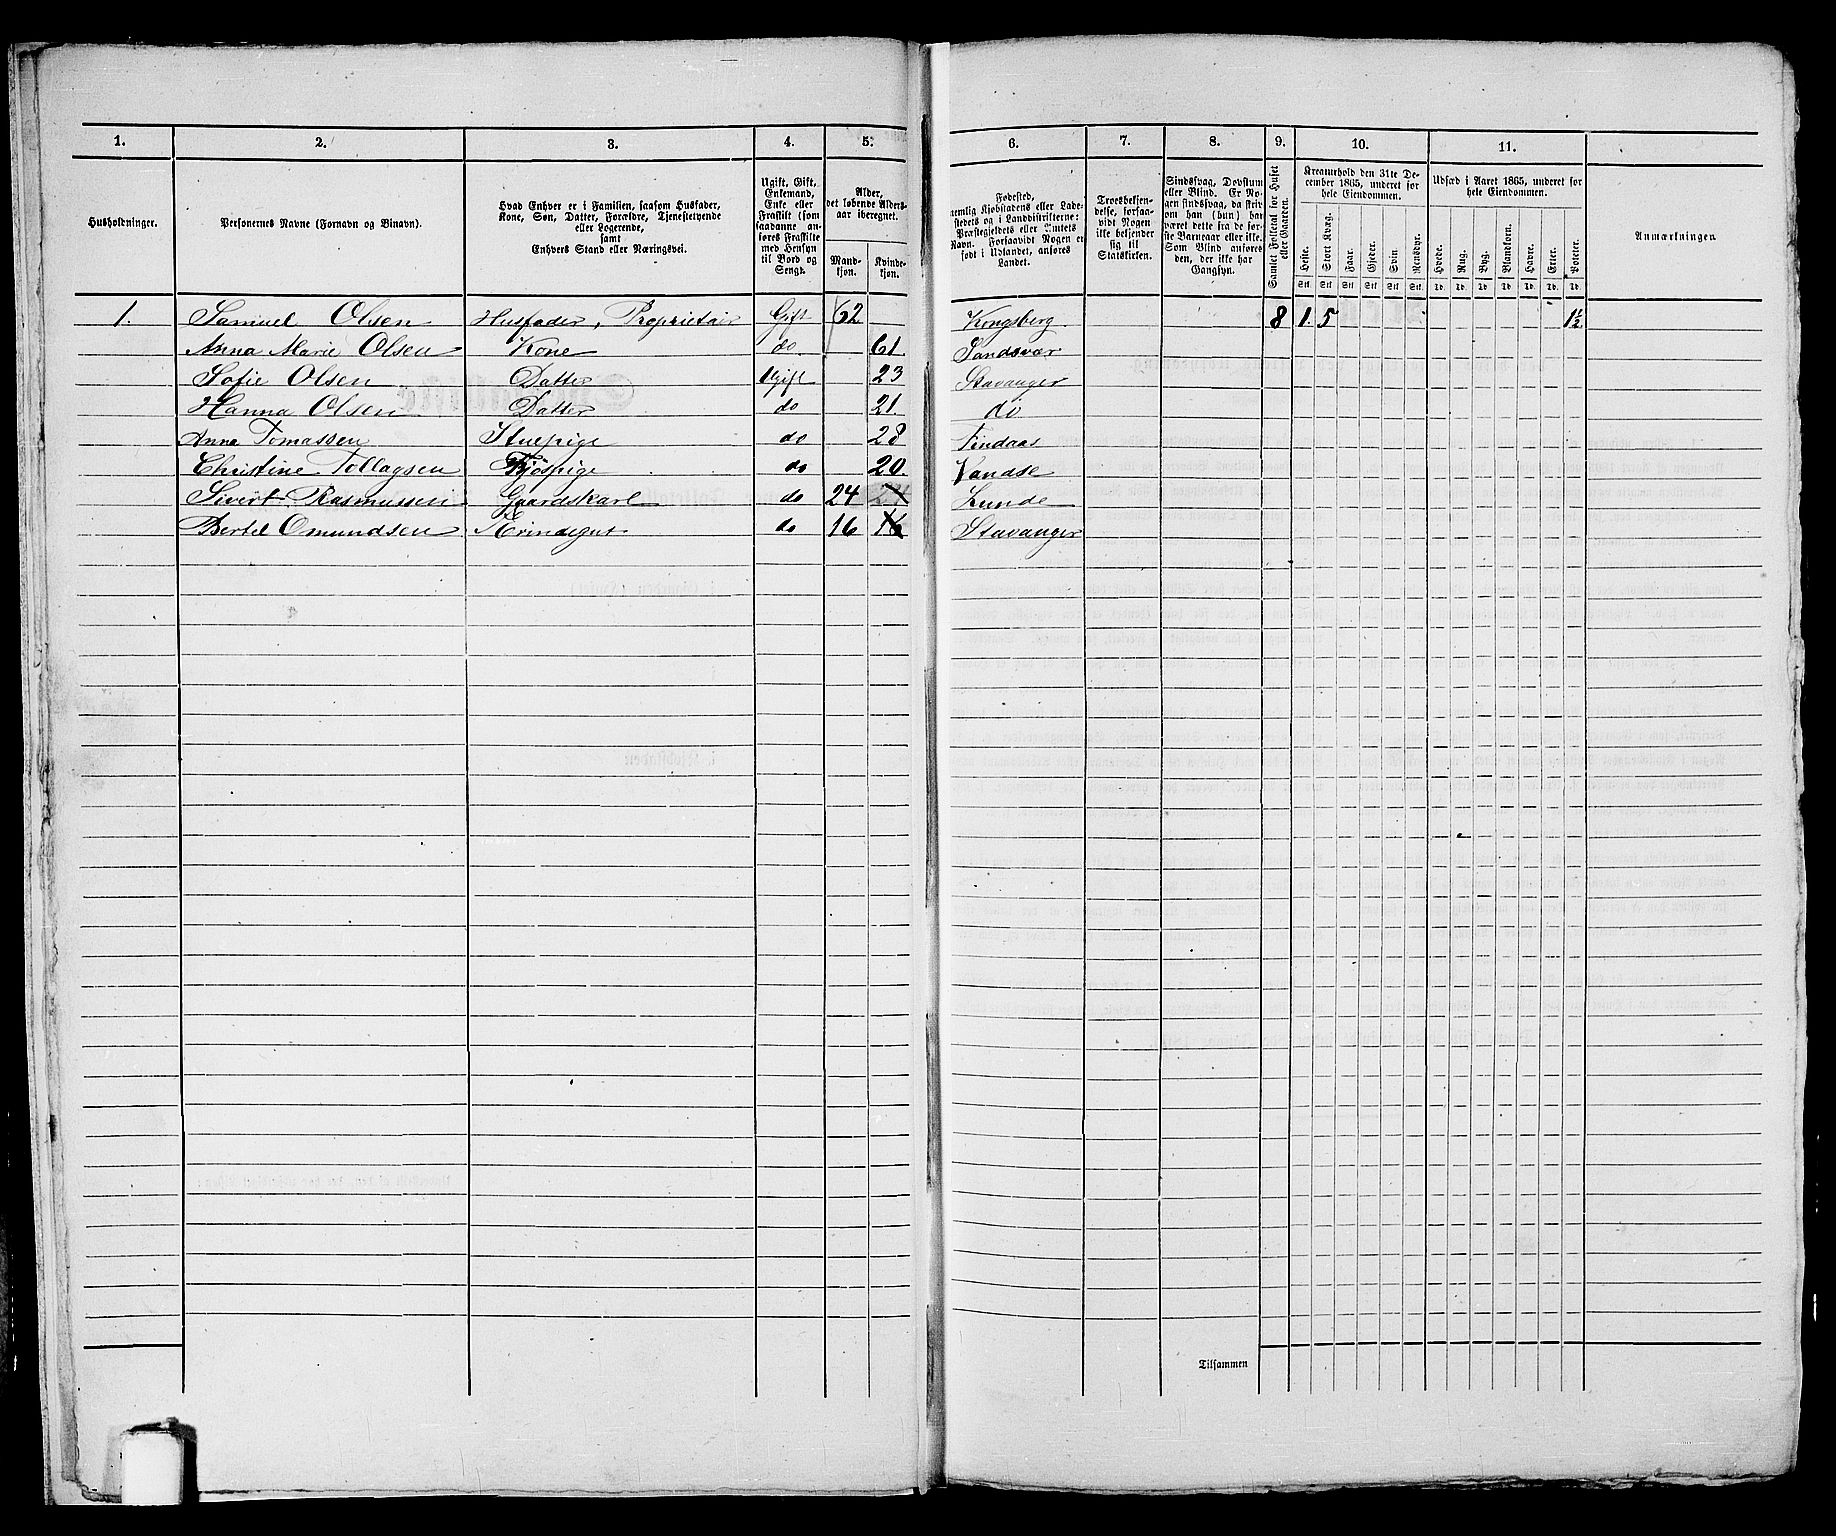 1. 2. 3. 4. 5. 6. 7. 8. 9. 10. 11.
Husholdninger.
Personernes Navne (Fornavn og Binavn).
Hvad Enhver er i Familien, saasom Husfader,
Kone, Søn, Datter, Forældre, Tjenestetyende
eller Logerende,
samt
Enhvers Stand eller Næringsvei.
Ugift, Gift,
Enkemand,
Enke eller
Fraskilt (som
saadanne an-
føres Fraskilte
med Hensyn
til Bord og
Seng).
Alder,
det løbende Alders-
aar iberegnet.
Mand-
kjøn.
Kvinde-
kjøn.
Fødested,
nemlig Kjøbstadens eller Lade-
stedets og i Landdistrikterne:
Præstegjeldets eller Sognets
Navn. Forsaavidt Nogen er
født i Udlandet, anføres
Landet.
Troesbekjen-
delse, forsaa-
vidt Nogen
ikke bekjender
sig til
Statskirken.
Sindssvag, Døvstum
eller Blind. Er No-
gen sindssvag, da skriv
om han (hun) har
været dette fra de før-
ste Barneaar eller ikke.
Som Blind anføres
den, der ikke har
Gangsyn.
Samlet Folketal for Huset
eller Gaarden.
Kreaturhold den 31te De-
cember 1865, underet for
hele Eiendommen.
Heste. Stort Kvæg. Faar. Gjeder. Svin Rensdyr.
Stk. Stk. Stk. Stk. Stk. Stk.
Udsæd i Aaret 1865, underet for
hele Eiendommen.
Hvede. Rug. Byg. Blandkorn. Havre. Erter. Poteter.
Td. Td. Td. Td. Td. Td. Td.
Anmærkninger
1. Samuel Olsen Husfader, Proprietair Gift 62 Kongsberg 8 1. 5 1½.
Anna Marie Olsen Kone do. 61. Sandsvær
Sofie Olsen Datter Ugift 23 Stavanger
Hanna Olsen Datter do 21. do
Anna Tomassen Stuepige do 28 Tindaas
Christine Tollagsen Fjøspige do 20. Vandse
Sivert Rasmussen Gaardskarl do 24 24 Lunde
Bertel Omundsen Ærindegut do 16 16 Stavanger
Tilsammen